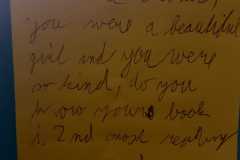 you were a beautiful
girl and you were
so kind, do you
know yours book
is 2nd most reading